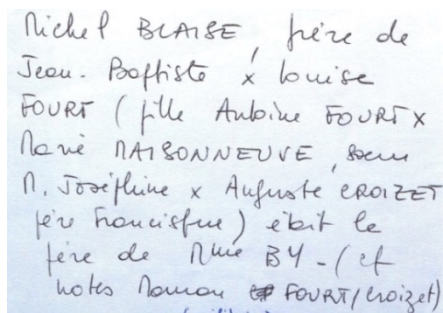 Michel BLAISE, frère de
Jean-Baptiste x Louise
FOURT (fille Antoine FOURT x
Marie MAISONNEUVE, soeur
M. Joséphine x Auguste CROIZET
père Francisque) était le
père de Mme BY - (cf
notes Maman FOURT/Croizet)